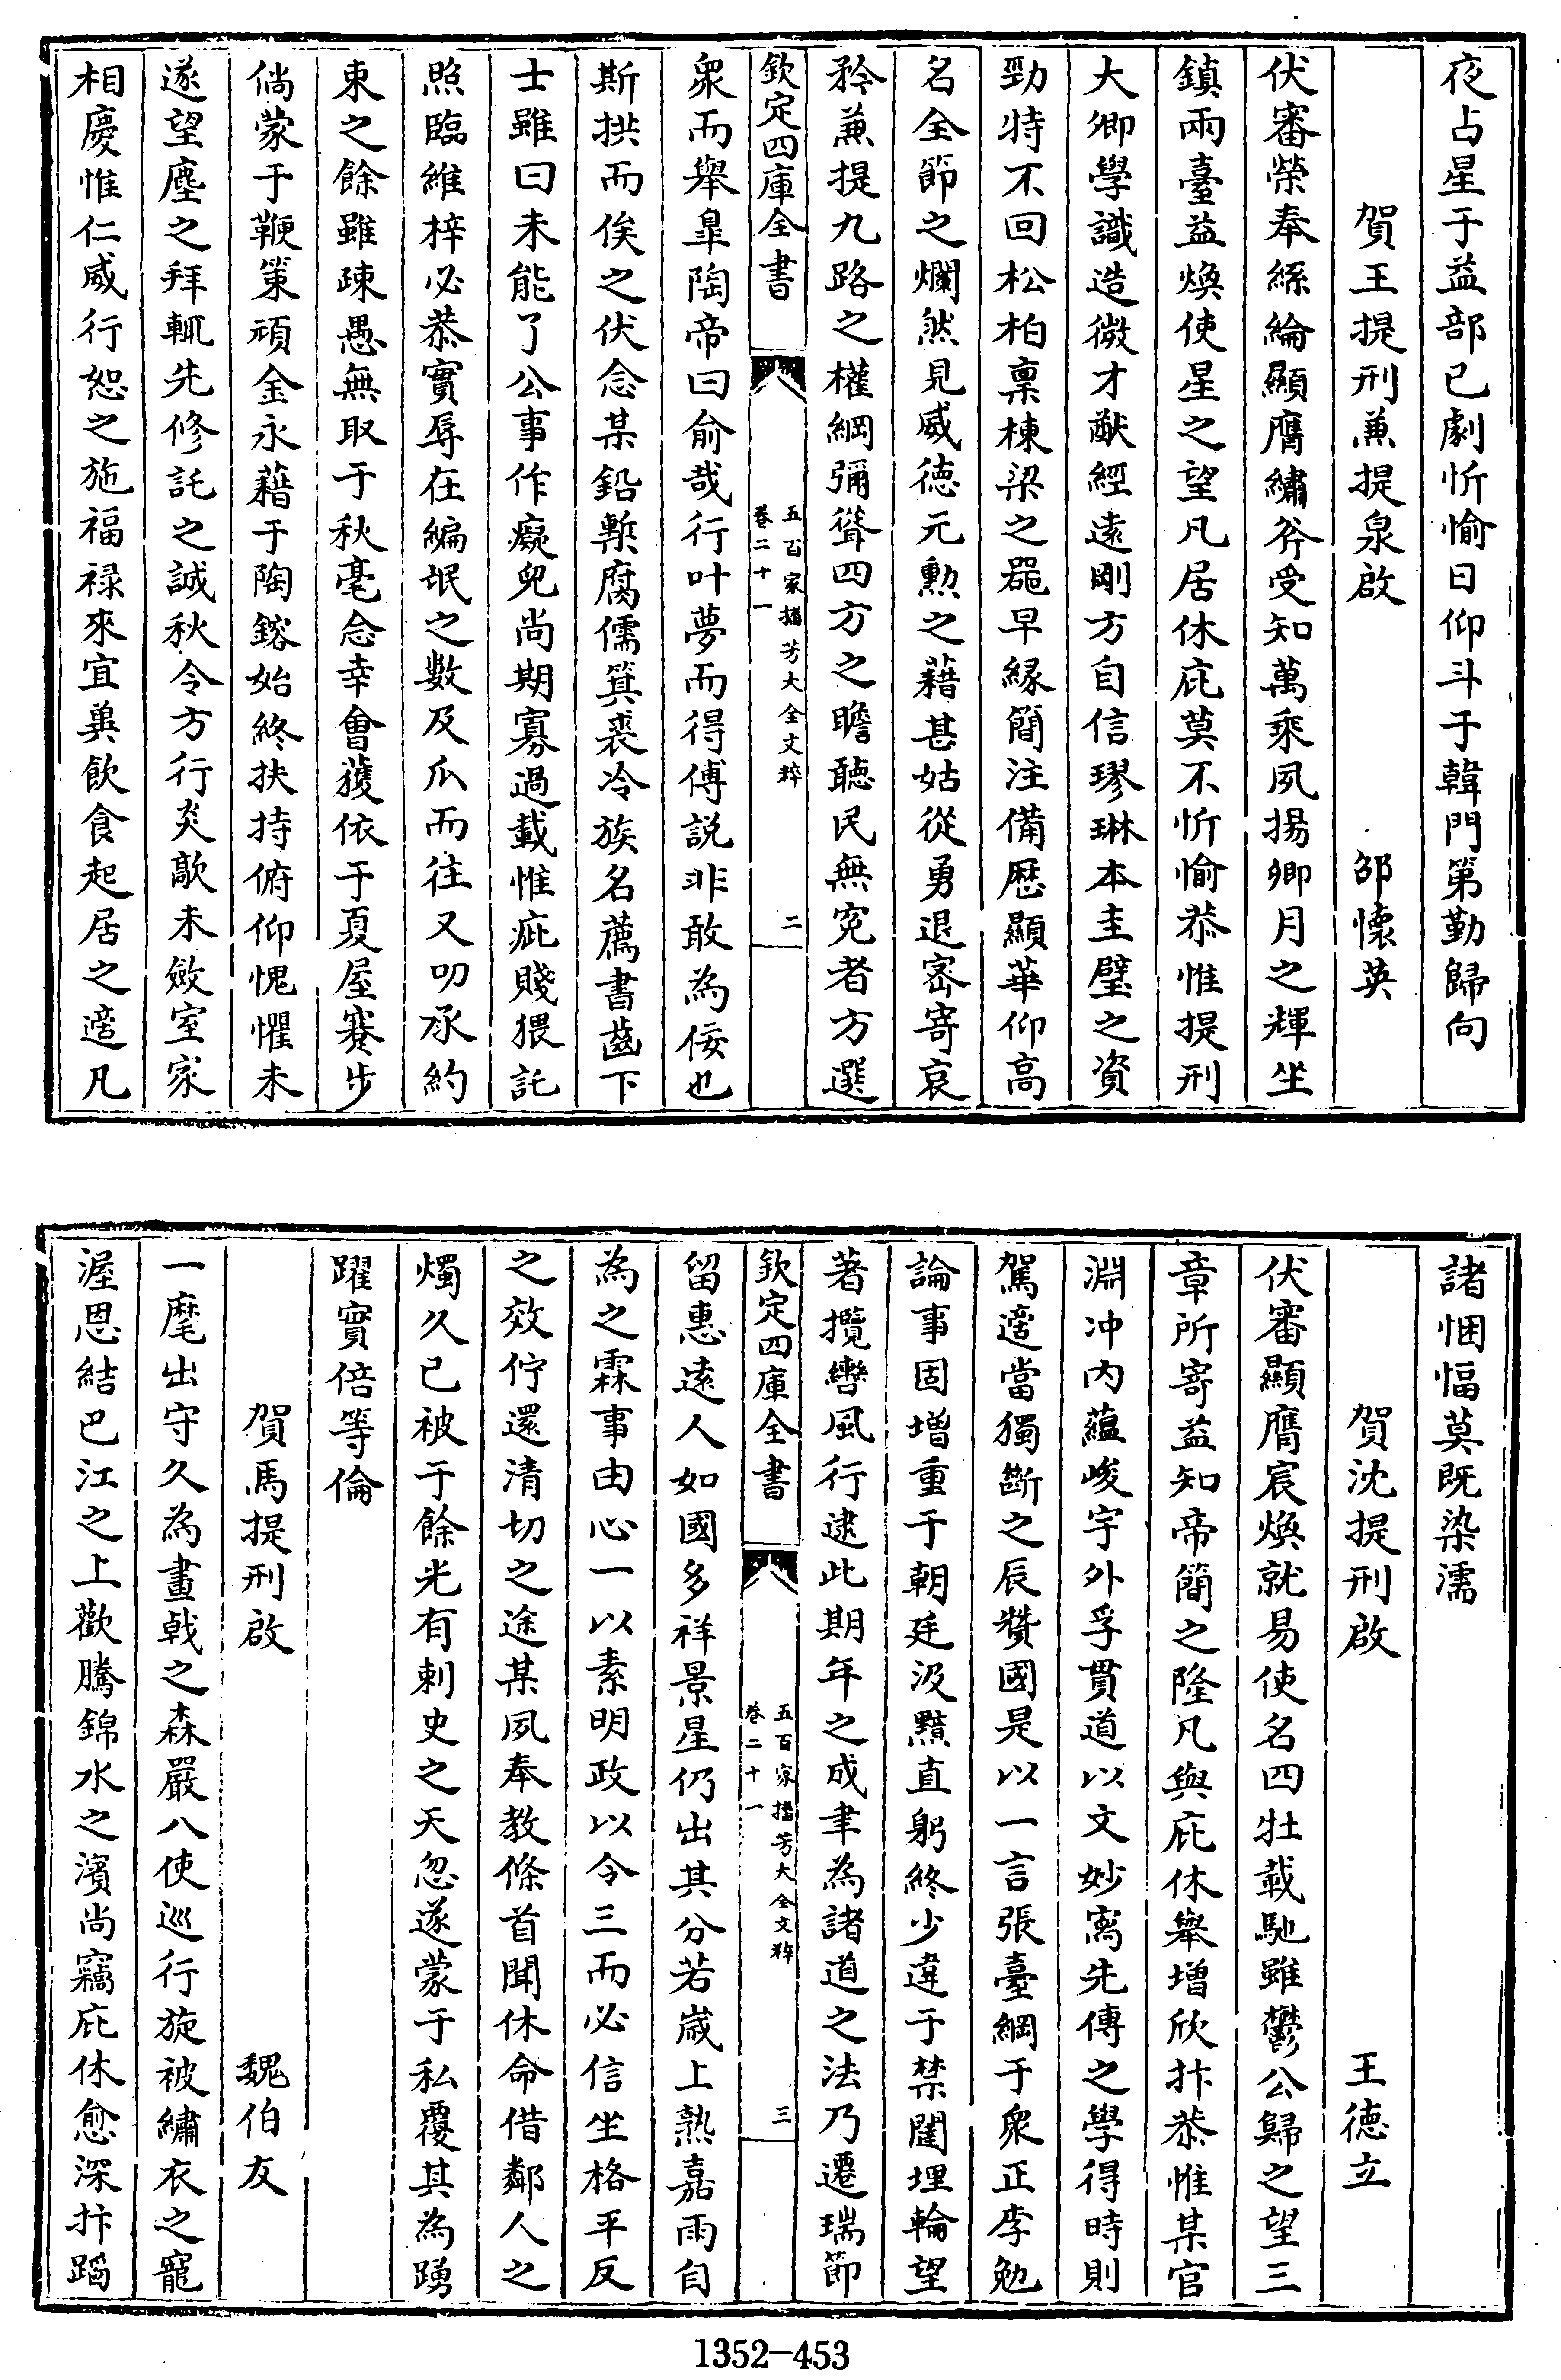 夜占星于益部已劇忻愉日仰斗于韓門第勤歸向
賀王提刑兼提泉啟　邵懷英
伏審榮奉絲綸顯膺繡斧受知萬乘夙揚卿月之輝坐
鎮兩臺益煥使星之望凡居休庇莫不忻愉恭惟提刑
大卿學識造微才猷經遠剛方自信璆琳本圭璧之資
勁特不回松柏稟棟梁之器早緣簡注備歷顯華仰高
名全節之爛然見威德元勳之藉甚姑從勇退宻寄哀
矜兼提九路之權綱彌聳四方之瞻聽民無寃者方選
欽定四庫全書
五百家播芳大全文粹
卷二十一
二
衆而舉臯陶帝曰俞哉行叶夢而得傅説非敢為佞也
斯拱而俟之伏念某鉛槧腐儒箕裘冷族名薦書齒下
士雖曰未能了公事作癡兒尚期寡過載惟疵賤猥託
照臨維梓必恭實辱在編氓之數及瓜而往又叨承約
束之餘雖疎愚無取于秋毫念幸會獲依于夏屋蹇步
倘蒙于鞭策頑金永藉于陶鎔始終扶持俯仰愧懼未
遂望塵之拜輒先修託之誠秋令方行炎歊未斂室家
相慶惟仁威行恕之施福禄來宜㒷飲食起居之適凡
諸悃愊莫既染濡
賀沈提刑啟　王德立
伏審顯膺宸煥就易使名四牡載馳雖鬱公歸之望三
章所寄益知帝簡之隆凡與庇休舉增欣抃恭惟某官
淵冲内藴峻宇外孚貫道以文妙寓先傳之學得時則
駕適當獨斷之辰贊國是以一言張臺綱于衆正李勉
論事固增重于朝廷汲黯直躬終少違于禁闥埋輪望
著攬轡風行逮此期年之成聿為諸道之法乃遷瑞節
欽定四庫全書
五百家播芳大全文粹
卷二十一
三
留惠遠人如國多祥景星仍出其分若歲上熟嘉雨自
為之霖事由心一以素明政以令三而必信坐格平反
之效佇還清切之途某夙奉教條首聞休命借鄰人之
燭久已被于餘光有刺史之天忽遂蒙于私覆其為踴
躍實倍等倫
賀馬提刑啟　魏伯友
一麾出守久為畫戟之森嚴八使巡行旋被繡衣之寵
渥恩結巴江之上歡騰錦水之濱尚竊庇休愈深抃蹈
1352-453